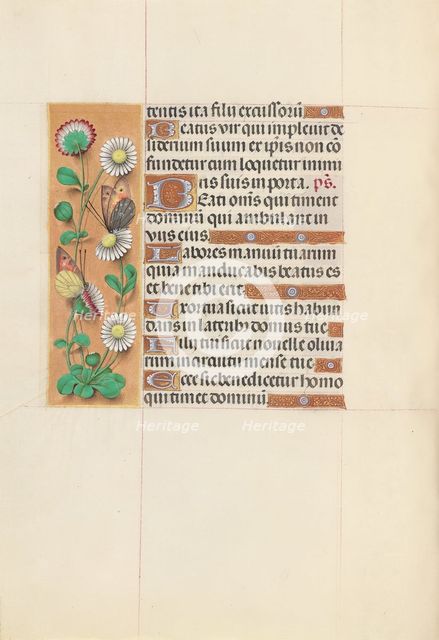 tentis ita filii excussorū
Beatus vir qui impleuit de
siderium suum ex ipsis non cō
fundetur cum loquetur inimi
cis suis in porta. ps.
Beati omēs qui timent
dominū qui ambulant in
viis eius
Labores manuū tuarum
quia manducabis beatus es
et bene tibi erit
Uxor tua sicut uitis habun
dans in laterib' domus tue
Filii tui sicut nouelle oliua
rum in circuitu mense tue
Ecce sic benedicetur homo
qui timet dominū
Heritage Heritage
Heritage Heritage
Heritage Heritage